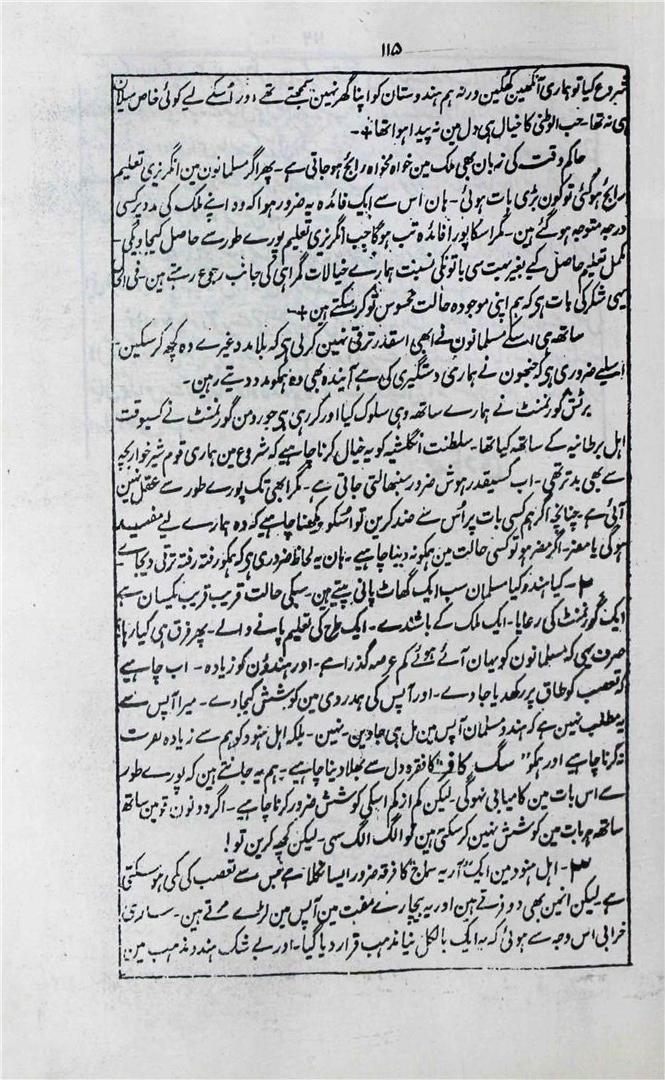 ۱۱۵
شروع کیا تو ہماری آنکھین کھلین ورنہ ہم ہندوستان کو اپنا گھر نہین سمجھتے تھے اور اُسکے لیے کوئی خاص میلان
ہی نہ تھا۔ حب الوطنی کا خیال ہی دل مین نہ پیدا ہوا تھا۔
حاکم وقت کی زبان بھی ملک مین خواہ مخواہ رایج ہو جاتی ہے۔ پھر اگر مسلمانون مین انگریزی تعلیم
رایج ہو گئی تو کون بڑی بات ہوئی۔ ہان اس سے ایک فائدہ یہ ضرور ہوا کہ وہ اپنے ملک کی مدد پر کسی
درجہ متوجہ ہو گئے ہین۔ مگر اسکا پورا فائدہ تب ہوگا جب انگریزی تعلیم پورے طور سے حاصل کیجاویگی۔
مکمل تعلیم حاصل کیے بغیر بہت سی باتونکی نسبت ہمارے خیالات گمراہی کی جانب رجوع رہتے ہین۔ فی الحال
یہی شکر کی بات ہی کہ ہم اپنی موجودہ حالت محسوس تو کر سکتے ہین۔
ساتھ ہی اسکے مسلمانون نے ابھی اسقدر ترقی نہین کر لی ہی کہ بلا مدد غیرے وہ کچھ کر سکین۔
اسلیے ضروری ہی کہ جنھون نے ہماری دستگیری کی ہے آیندہ بھی وہ ہمکو مدد دیتے رہین۔
برٹش گورنمنٹ نے ہمارے ساتھ وہی سلوک کیا اور کر رہی ہی جو رومن گورنمنٹ نے کسیوقت
اہل برطانیہ کے ساتھ کیا تھا۔ سلطنت انگلشیہ کو یہ خیال کرنا چاہیے کہ شروع مین ہماری قوم شیر خوار بچہ
سے بھی بدتر تھی۔ اب کسیقدر ہوش ضرور سنبھالتی جاتی ہے۔ مگر ابھی تک پورے طور سے عقل نہین
آئی ہے چنانچہ اگر ہم کسی بات پر اُس سے ضد کرین تو اُسکو دیکھنا چاہیے کہ وہ ہمارے لیے مفید
ہوگی یا مضر۔ اگر مضر ہو تو کسی حالت مین ہمکو نہ دینا چاہیے۔ ہان یہ لحاظ ضروری ہی کہ ہمکو رفتہ رفتہ ترقی دیجاے
۲۔ کیا ہندو کیا مسلمان سب ایک گھاٹ پانی پیتے ہین۔ سبکی حالت قریب قریب یکسان ہے
ایک گورنمنٹ کی رعایا۔ ایک ملک کے باشندے۔ ایک طرح کی تعلیم پانے والے۔ پھر فرق ہی کیا رہا؟
صرف یہی کہ مسلمانون کو یہان آئے ہوئے کم عرصہ گذرا ہے۔ اور ہندؤن کو زیادہ۔ اب چاہیے
کہ تعصب کو طاق پر رکھدیا جاوے۔ اور آپس کی ہمدردی مین کوشش کیجاوے۔ میرا آپس سے
یہ مطلب نہین ہے کہ ہندو مسلمان آپس مین مل ہی جاوین۔ نہین۔ بلکہ اہل ہنود کو ہم سے زیادہ نفرت
نہ کرنا چاہیے اور ہمکو "سگ کافر" کا فقرہ دل سے بھلا دینا چاہیے۔ ہم یہ جانتے ہین کہ پورے طور
سے اس بات مین کامیابی نہوگی۔ لیکن کم از کم اسکی کوشش ضرور کرنا چاہیے۔ اگر دونون قومین ساتھ
ساتھ ہر بات مین کوشش نہین کر سکتی ہین تو الگ الگ سہی۔ لیکن کچھ کرین تو!
۳۔ اہل ہنود مین ایک "آریہ سماج" کا فرقہ ضرور ایسا نکلا ہے جس سے تعصب کی کمی ہو سکتی
ہے لیکن انمین بھی دو فرقے ہین اور یہ بیچارے مفت مین آپس مین لڑے مرتے ہین۔ ساری
خرابی اس وجہ سے ہوئی کہ یہ ایک بالکل نیا مذہب قرار دیا گیا۔ اور بے شک ہندو مذہب مین